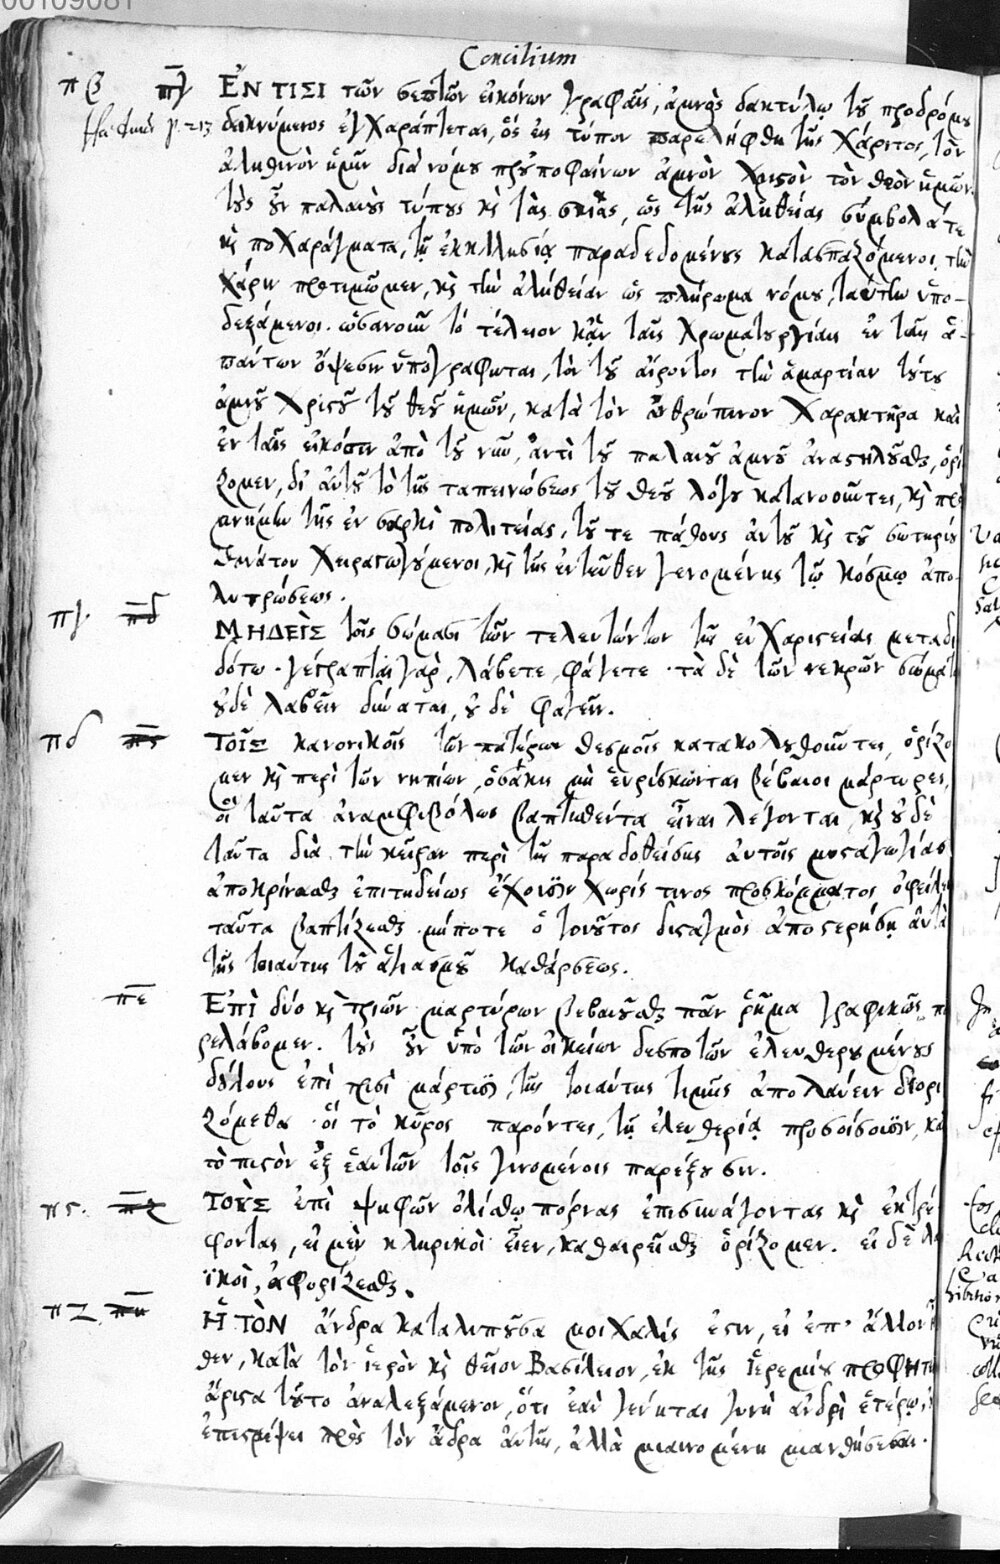 00109081
Concilium
πβ ΕΝ ΤΙΣΙ τῶν σεπτῶν εἰκόνων γραφαῖς, ἀμνὸς δακτύλῳ τοῦ προδρόμου
δεικνύμενος ἐγχαράττεται, ὃς εἰς τύπον παρελήφθη τῆς χάριτος, τὸν
ἀληθινὸν ἡμῖν διὰ νόμου προϋποφαίνων ἀμνὸν χριστὸν τὸν θεὸν ἡμῶν.
τοὺς οὖν παλαιοὺς τύπους κὶ τὰς σκιὰς, ὡς τῆς ἀληθείας σύμβολά τε
κὶ προχαράγματα, τῇ ἐκκλησίᾳ παραδεδομένους κατασπαζόμενοι, τὴν
χάριν προτιμῶμεν, κὶ τὴν ἀλήθειαν ὡς πλήρωμα νόμου, ταύτην ὑπο-
δεξάμενοι. ὡς ἂν οὖν τὸ τέλειον κἂν ταῖς χρωματουργίαις ἐν ταῖς ἁ-
πάντων ὄψεσιν ὑπογράφηται, τὸν τοῦ αἴροντος τὴν ἁμαρτίαν τοῦ
ἀμνοῦ χριστοῦ τοῦ θεοῦ ἡμῶν, κατὰ τὸν ἀνθρώπινον χαρακτῆρα καὶ
ἐν ταῖς εἰκόσιν ἀπὸ τοῦ νῦν, ἀντὶ τοῦ παλαιοῦ ἀμνοῦ ἀναστηλοῦσθαι, ὁρί
ζομεν, δι' αὐτοῦ τὸ τῆς ταπεινώσεως τοῦ θεοῦ λόγου κατανοοῦντες, κὶ πρὸς
μνήμην τῆς ἐν σαρκὶ πολιτείας, τοῦ τε πάθους αὐτοῦ κὶ τοῦ σωτηρίου
θανάτου χειραγωγούμενοι, κὶ τῆς ἐντεῦθεν γενομένης τῷ κόσμῳ ἀπο
λυτρώσεως.
πγ ΜΗΔΕῚΣ τοῖς σώμασι τῶν τελευτώντων τῆς εὐχαριστίας μεταδι
δότω. γέγραπται γὰρ, λάβετε, φάγετε. τὰ δὲ τῶν νεκρῶν σώματα
οὐδὲ λαβεῖν δύναται, οὐδὲ φαγεῖν.
πδ ΤΟῖΣ κανονικοῖς τῶν πατέρων θεσμοῖς κατακολουθοῦντες, ὁρίζο
μεν κὶ περὶ τῶν νηπίων, ὁσάκις μὴ εὑρίσκωνται βέβαιοι μάρτυρες,
οἱ ταῦτα ἀναμφιβόλως βαπτισθέντα εἶναι λέγονται, κὶ οὐδὲ
ταῦτα διὰ τὴν περὶ τῆς παραδοθείσης αὐτοῖς μυσταγωγίας
ἀποκρίνασθαι ἐπιτηδείως ἔχουσιν χωρίς τινος προσκόμματος ὀφείλειν
ταῦτα βαπτίζεσθαι. μήποτε ὁ τοιοῦτος δισταγμὸς ἀποστερήσῃ αὐτὰ
τῆς τοιαύτης τοῦ ἁγιασμοῦ καθάρσεως.
πε Ἐπὶ δύο κὶ τριῶν μαρτύρων βεβαιοῦσθαι πᾶν ῥῆμα γραφικῶς πα
ρελάβομεν. τοὺς οὖν ὑπὸ τῶν οἰκείων δεσποτῶν ἐλευθερουμένους
δούλους ἐπὶ τρισὶ μάρτυσι, τῆς τοιαύτης τιμῆς ἀπολαύειν διορι
ζόμεθα. οἳ τὸ κῦρος παρόντες, τῇ ἐλευθερίᾳ προσοίσουσιν, καὶ
τὸ πιστὸν ἐξ ἑαυτῶν τοῖς γινομένοις παρέξουσιν.
πς. ΤΟῪΣ ἐπὶ ψυχῶν ὀλίσθῳ πόρνας ἐπισυνάγοντας κὶ ἐκτρέ
φοντας, εἰ μὲν κληρικοὶ εἶεν, καθαιρεῖσθαι ὁρίζομεν. εἰ δὲ λα
ϊκοὶ, ἀφορίζεσθαι.
πζ Ἡ ΤῸΝ ἄνδρα καταλιποῦσα μοιχαλίς ἐστιν, εἰ ἐπ' ἄλλον ἦλ
θεν, κατὰ τὸν ἱερὸν κὶ θεῖον Βασίλειον, ἐκ τῆς Ἱερεμίου προφητείας
ἄριστα τοῦτο ἀναλεξάμενον, ὅτι ἐὰν γένηται γυνὴ ἀνδρὶ ἑτέρῳ,
ἐπιστρέψει πρὸς τὸν ἄνδρα αὐτῆς, ἀλλὰ μιαινομένη μιανθήσεται.